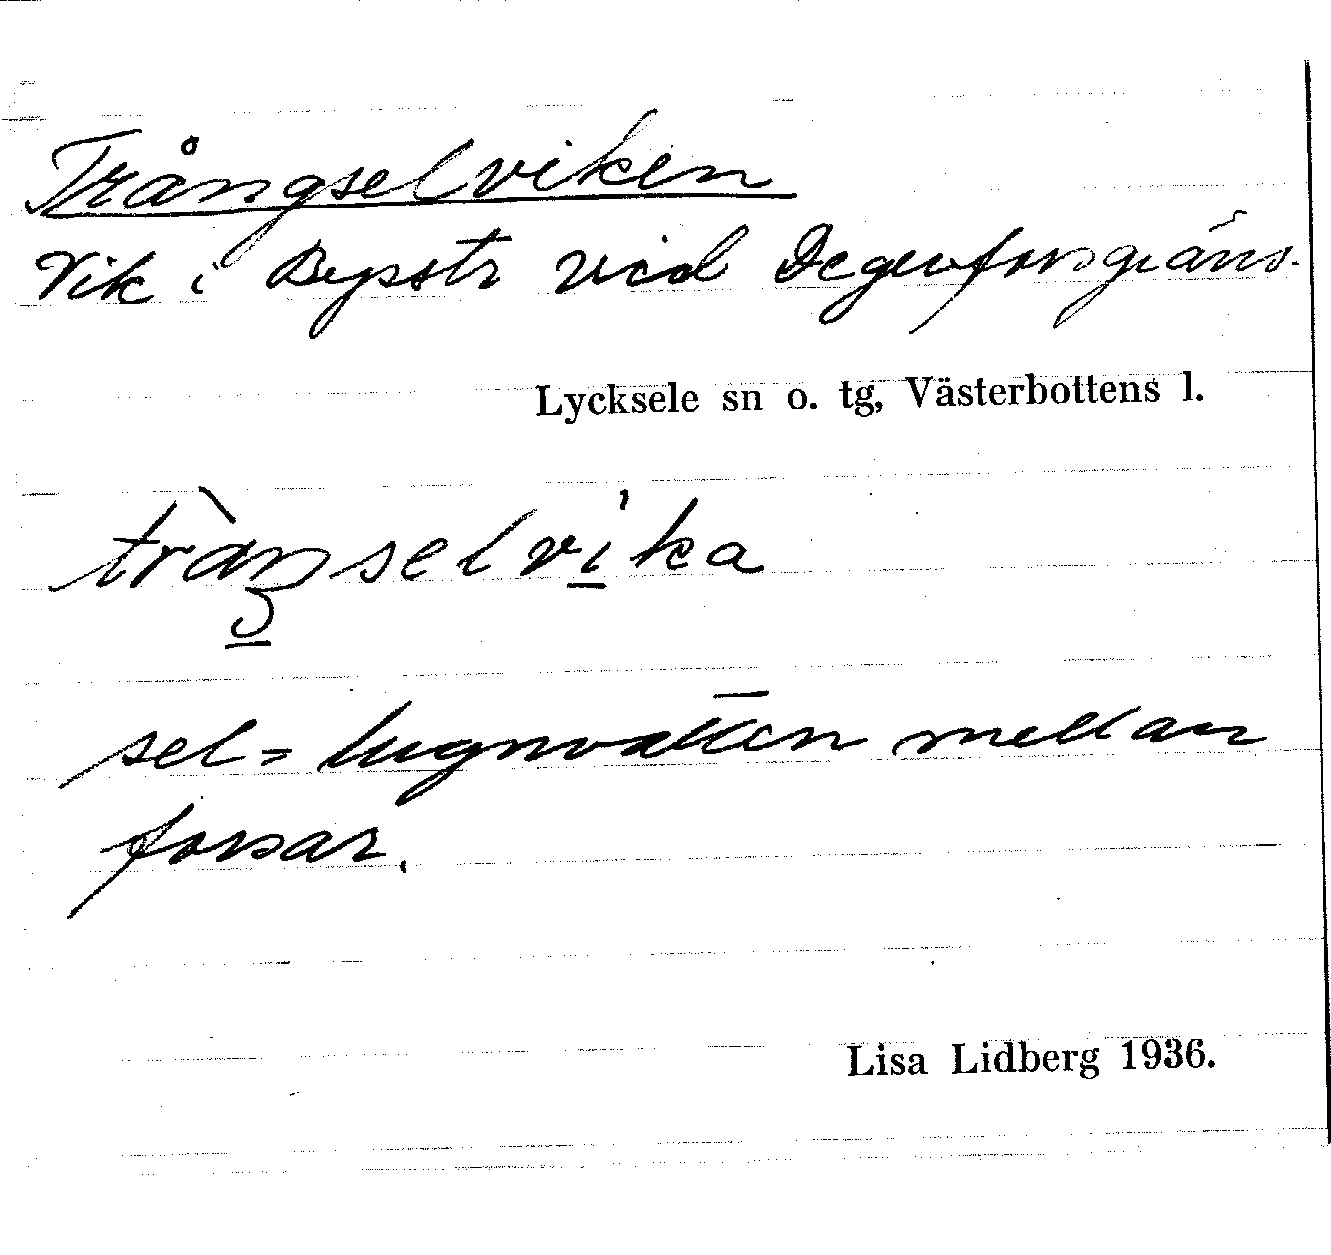 Trångselviken
Vik i Bysstr vid Degerforsgräns.
Lycksele sn o. tg, Västerbottens l.
tràŋselvi̲ka
sel = lugnvatten mellan
forsar.
Lisa Lidberg 1936.